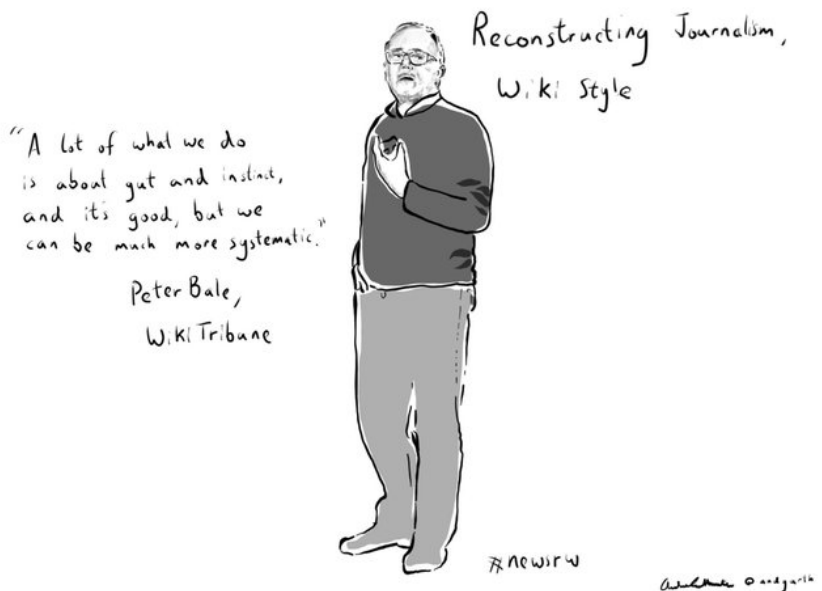 Reconstructing Journalism,
Wiki Style
"A lot of what we do
is about gut and instinct,
and it's good, but we
can be much more systematic."
Peter Bale,
WikiTribune
#newsrw